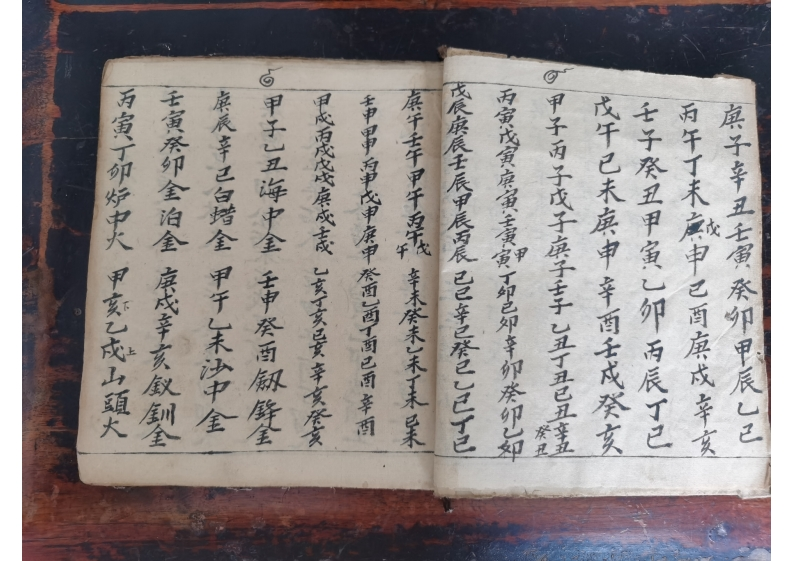 庚子辛丑壬寅癸卯甲辰乙巳
丙午丁未戊申己酉庚戌辛亥
壬子癸丑甲寅乙卯丙辰丁巳
戊午己未庚申辛酉壬戌癸亥
甲子丙子戊子庚子壬子乙丑丁丑己丑辛丑癸丑
丙寅戊寅庚寅壬寅甲寅丁卯己卯辛卯癸卯乙卯
戊辰庚辰壬辰甲辰丙辰己巳辛巳癸巳乙巳丁巳
庚午壬午甲午丙午戊午辛未癸未乙未丁未己未
壬申甲申丙申戊申庚申癸酉乙酉丁酉己酉辛酉
甲戌丙戌戊戌庚戌壬戌乙亥丁亥己亥辛亥癸亥
甲子乙丑海中金壬申癸酉劔鋒金
庚辰辛巳白蜡金甲午乙未沙中金
壬寅癸卯金泊金庚戌辛亥釵釧金
丙寅丁卯炉中火甲亥下乙戌上山頭火